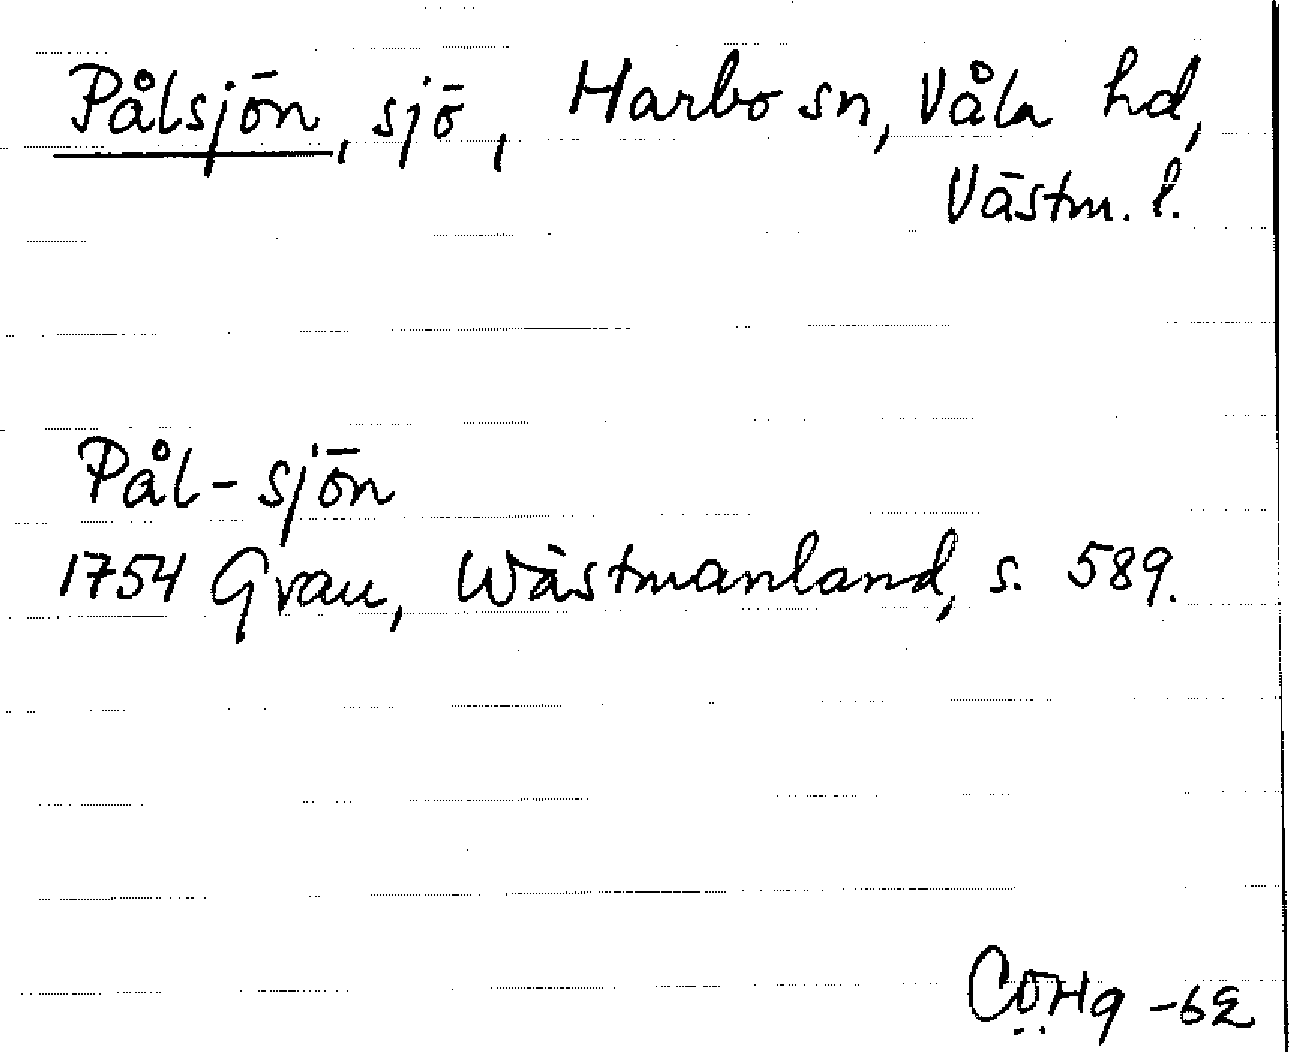 Pålsjön, sjö, Harbo sn, Våla hd,
Västm. l.
Pål-sjön
1754 Grau, Wästmanland, s. 589.
CÖHq -62